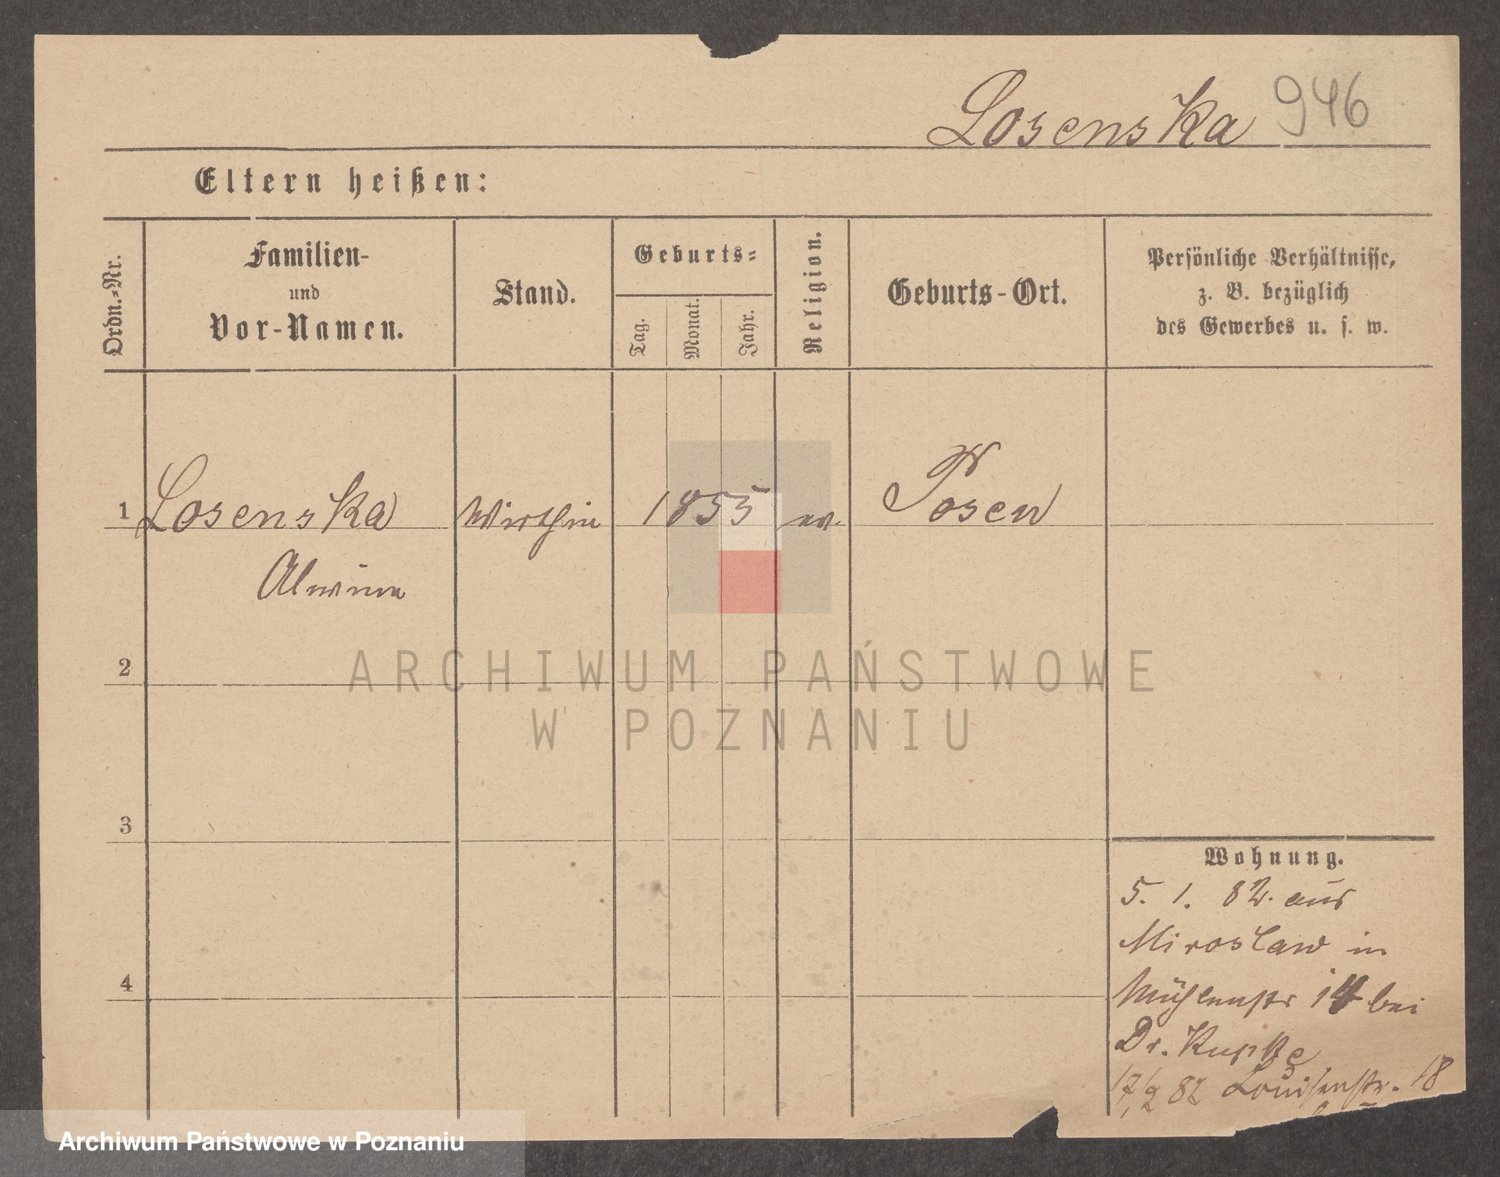 Losenska 946
Eltern heißen:
Ordn.-Nr.
Familien-
und
Vor-Namen.
Stand.
Geburts-
Tag.
Monat.
Jahr.
Religion.
Geburts-Ort.
Persönliche Verhältnisse,
z. B. bezüglich
des Gewerbes u. s. w.
1 Losenska Wirthin 1855 ev. Posen
Alwine
2
ARCHIWUM PAŃSTWOWE
W POZNANIU
3
Wohnung.
5. 1. 82. aus
Miroslaw in
4
Mühlenstr 14 bei
Dr. Kupke
17/2 82 Louisenstr. 18
Archiwum Państwowe w Poznaniu